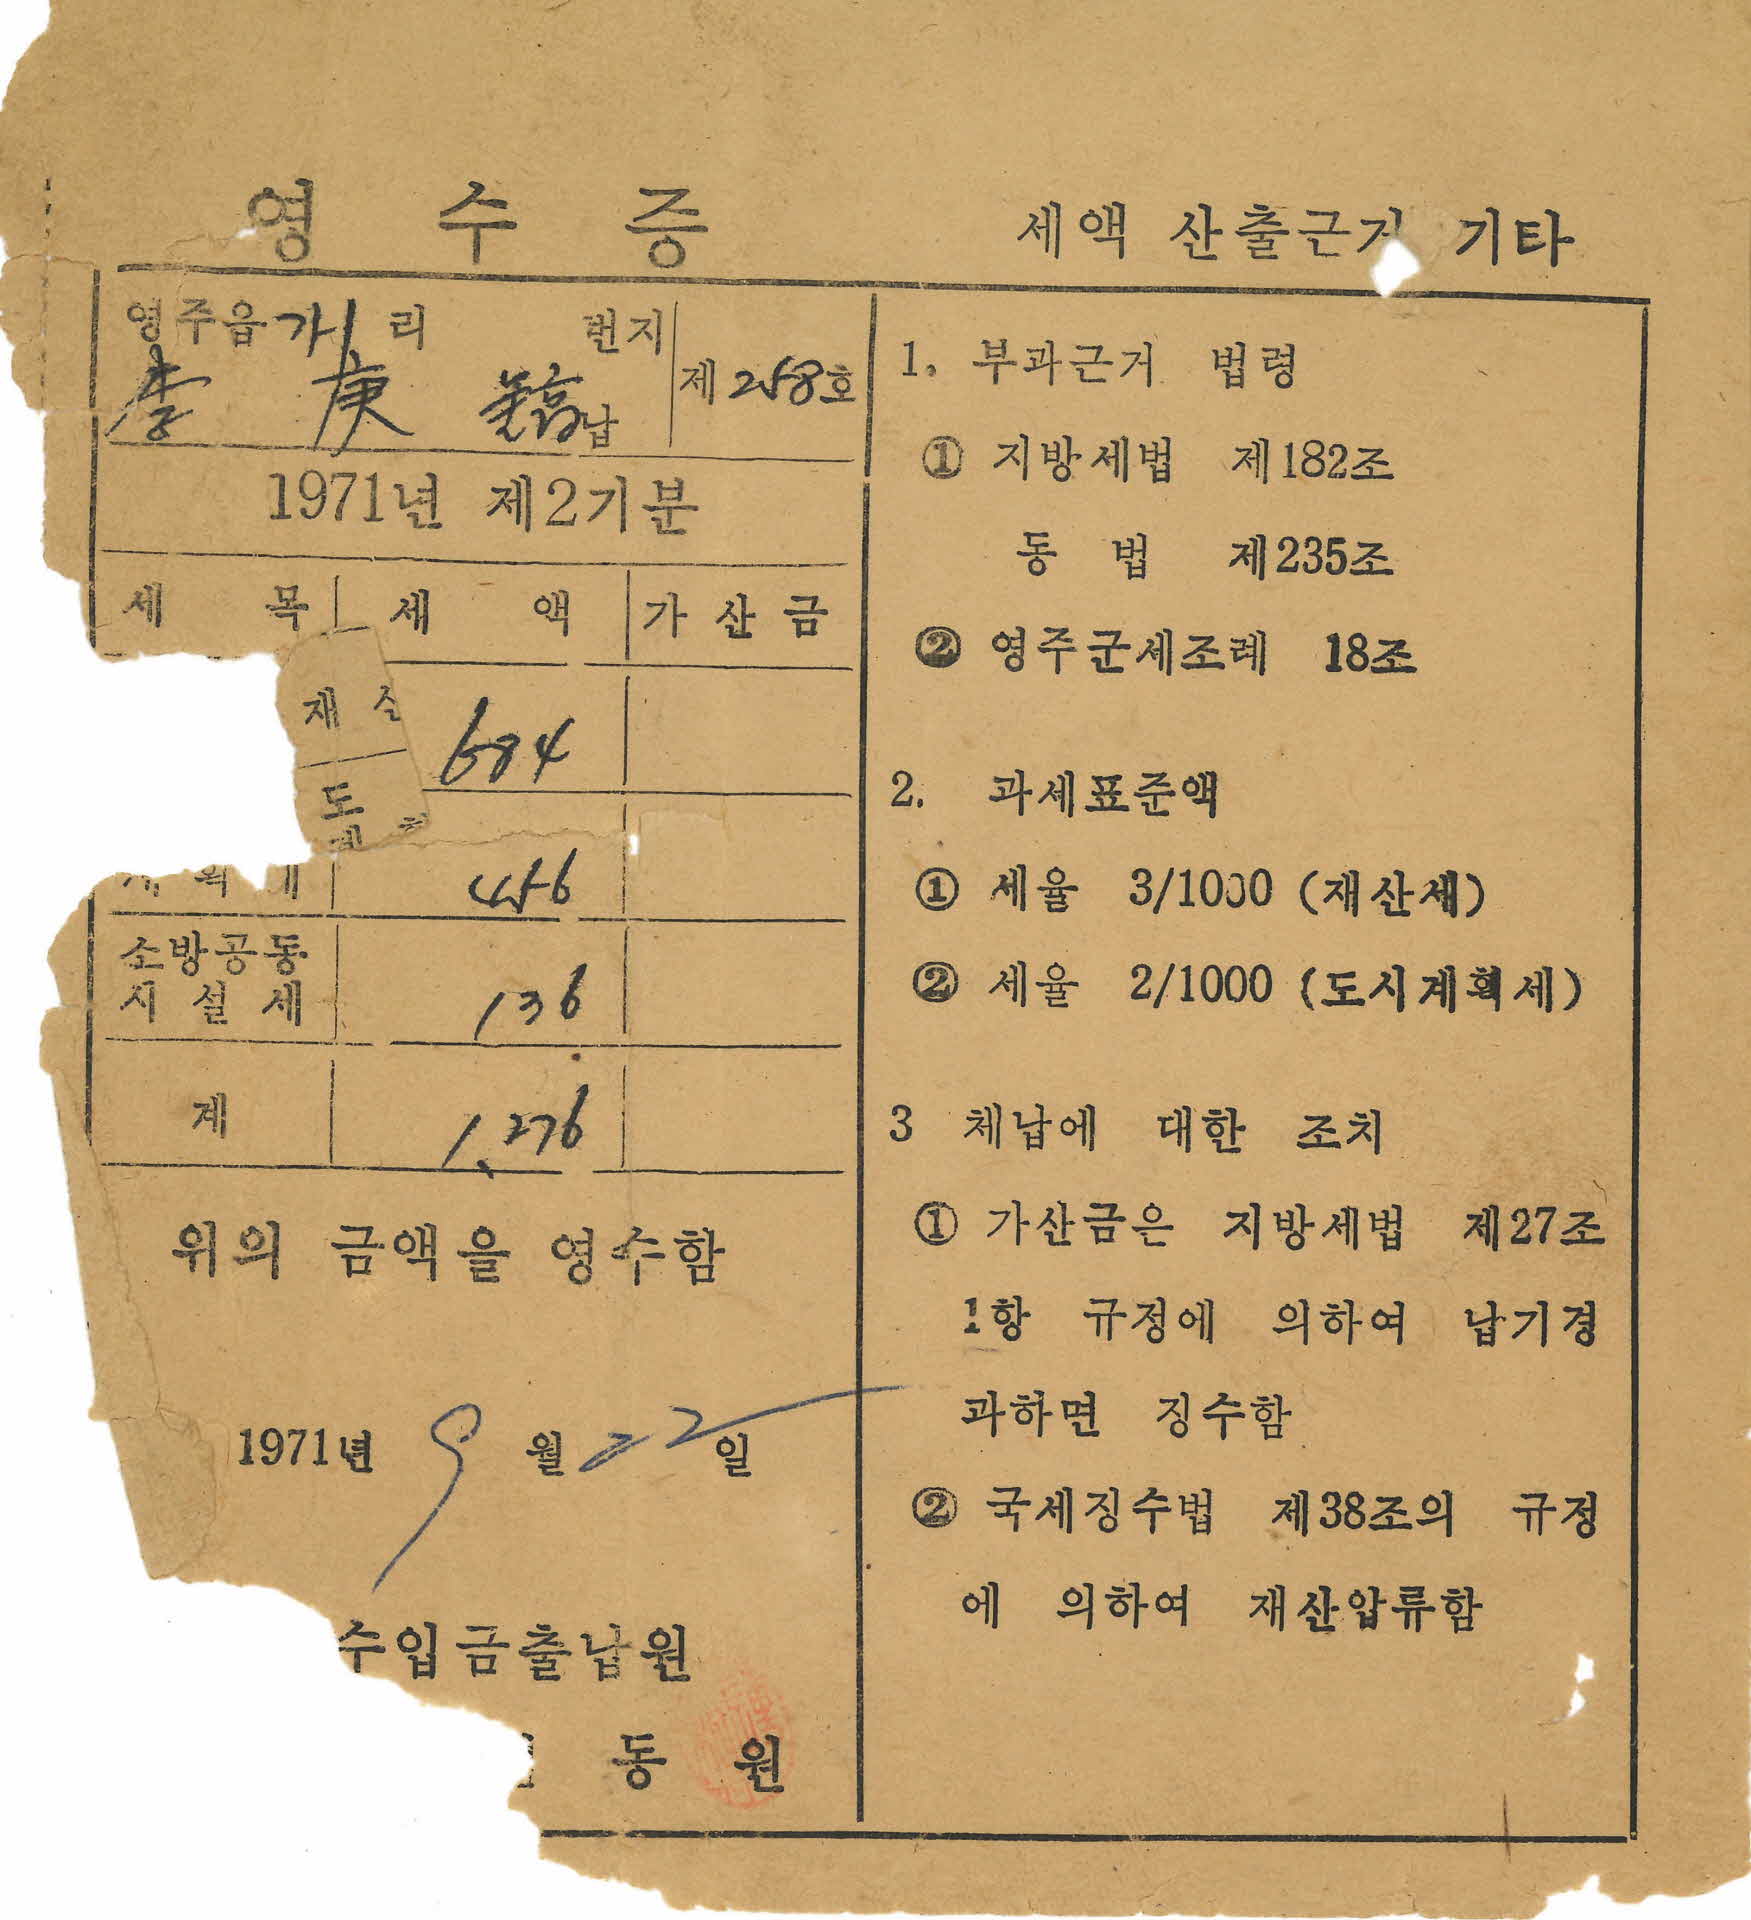 영 수 증
영주읍 가 1 리 번지
李 庚 납
제 258 호
1971년 제2기분
세 목 세 액 가 산 금
재 산
684
도
456
소방공동
시 설 세
136
계
1,276
위의 금액을 영수함
1971년 9 월 22 일
수입금출납원
동 원
세액 산출근거 기타
1. 부과근거 법령
① 지방세법 제182조
동 법 제235조
② 영주군세조례 18조
2. 과세표준액
① 세율 3/1000 (재산세)
② 세율 2/1000 (도시계획세)
3 체납에 대한 조치
① 가산금은 지방세법 제27조
1항 규정에 의하여 납기경
과하면 징수함
② 국세징수법 제38조의 규정
에 의하여 재산압류함